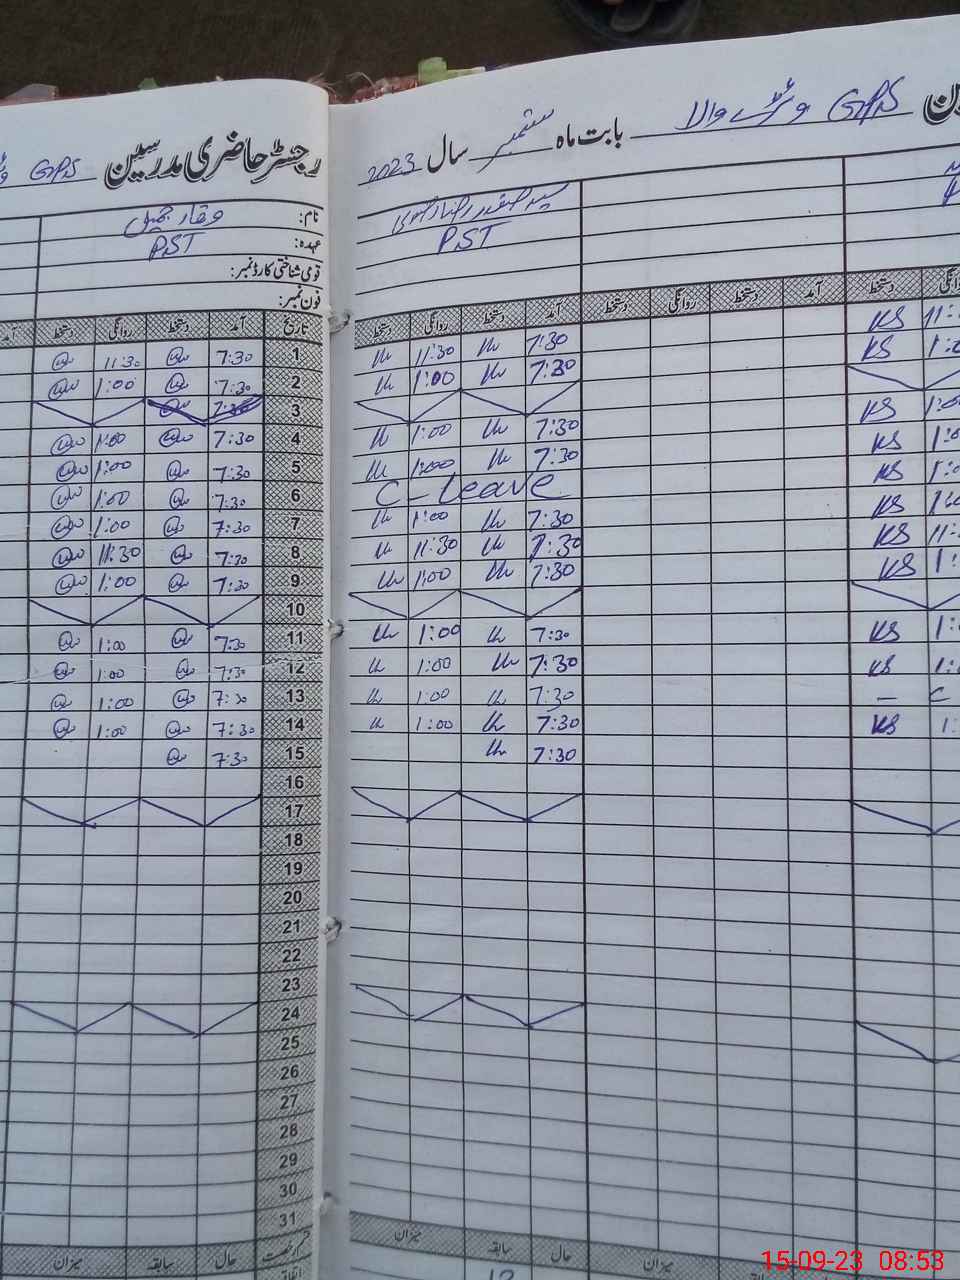 رجسٹر حاضری مدرسین
GPS
نام: وقار جمیل
عہدہ: PST
قومی شناختی کارڈ نمبر:
فون نمبر:
تاریخ آمد دستخط روانگی دستخط
1 7:30 11:30
2 7:30 1:00
3 7:30
4 7:30 1:00
5 7:30 1:00
6 7:30 1:00
7 7:30 1:00
8 7:30 11:30
9 7:30 1:00
10
11 7:30 1:00
12 7:30 1:00
13 7:30 1:00
14 7:30 1:00
15 7:30
16
17
18
19
20
21
22
23
24
25
26
27
28
29
30
31
حال سابقہ میزان
GPS والا بابت ماہ ستمبر سال 2023
PST
آمد دستخط روانگی دستخط آمد دستخط روانگی دستخط دستخط
7:30 11:30 KS
7:30 1:00 KS
7:30 1:00 KS
7:30 1:00 KS
C-Leave KS
7:30 1:00 KS
7:30 11:30 KS
7:30 1:00 KS
7:30 1:00 KS
7:30 1:00 KS
7:30 1:00 – C
7:30 1:00 KS
7:30
حال سابقہ میزان حال سابقہ میزان
12
15-09-23 08:53